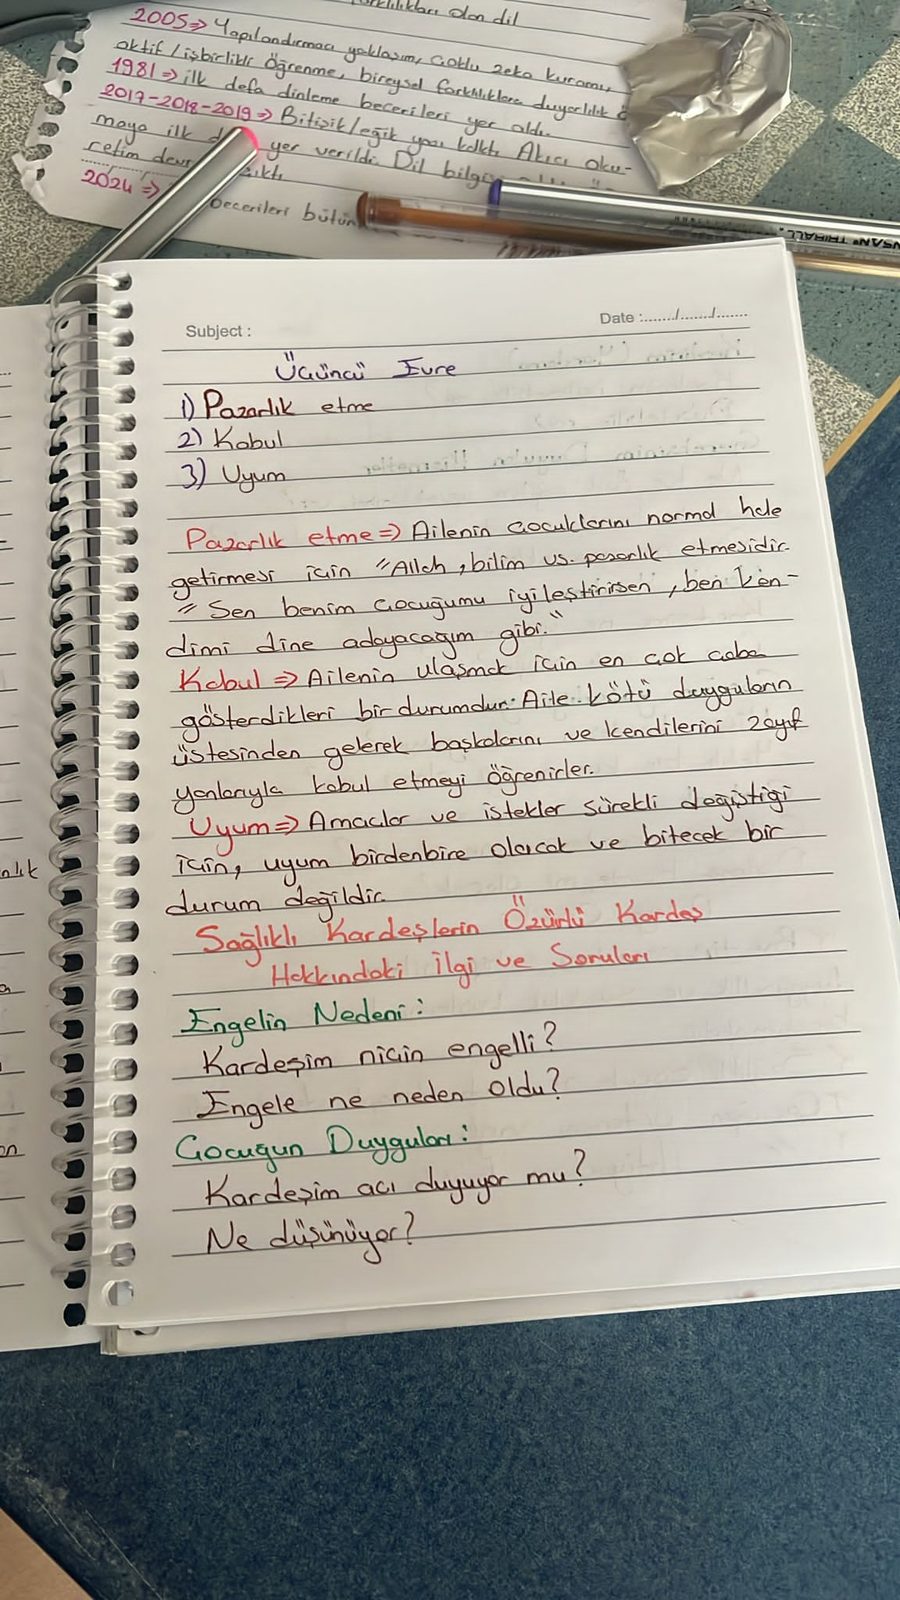 farklılıkları olan dil
2005⇒ Yapılandırmacı yaklaşım, çoklu zeka kuramı,
aktif/işbirlikli öğrenme, bireysel farklılıklara duyarlılık
1981⇒ ilk defa dinleme becerileri yer aldı.
2017-2018-2019⇒ Bitişik/eğik yazı kalktı. Akıcı oku-
maya ilk yer verildi. Dil bilgisi
2024⇒
becerileri
TRIBALL
Subject :
Date :......./......./.......
Üçüncü Evre
1) Pazarlık etme
2) Kabul
3) Uyum
Pazarlık etme⇒ Ailenin çocuklarını normal hale
getirmesi için "Allah, bilim vs. pazarlık etmesidir.
"Sen benim çocuğumu iyileştirirsen, ben ken-
dimi dine adayacağım gibi."
Kabul⇒ Ailenin ulaşmak için en çok çaba
gösterdikleri bir durumdur. Aile kötü duyguların
üstesinden gelerek başkalarını ve kendilerini zayıf
yanlarıyla kabul etmeyi öğrenirler.
Uyum⇒ Amaçlar ve istekler sürekli değiştiği
için, uyum birdenbire olacak ve bitecek bir
durum değildir.
Sağlıklı Kardeşlerin Özürlü Kardeş
Hakkındaki İlgi ve Soruları
Engelin Nedeni:
Kardeşim niçin engelli?
Engele ne neden oldu?
Çocuğun Duyguları:
Kardeşim acı duyuyor mu?
Ne düşünüyor?